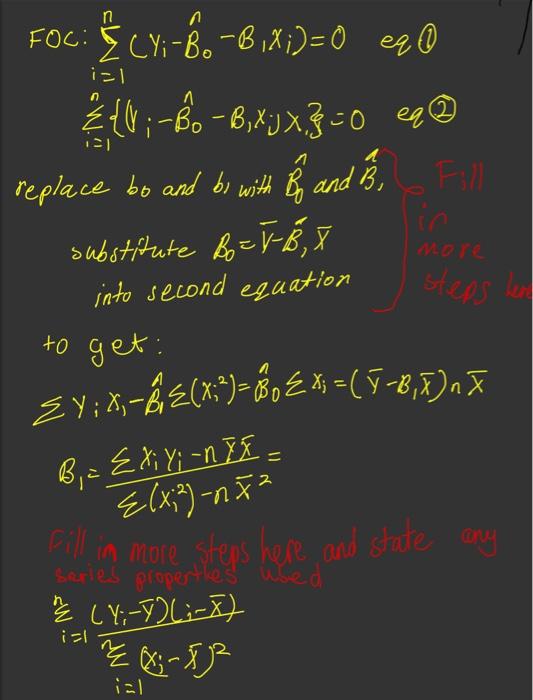 FOC: n Σ i=1 (Yi-B̂0-B1Xi)=0 eq ①
n Σ i=1 {(Yi-B̂0-B1Xi)Xi}=0 eq ②
replace b0 and b1 with B̂0 and B̂1
substitute B0=Ȳ-B̂1X̄
into second equation
Fill
in
more
steps here
to get:
ΣYiXi-B̂1Σ(Xi²)=B̂0ΣXi=(Ȳ-B1X̄)nX̄
B1= ΣXiYi-nȲX̄ =
Σ(Xi²)-nX̄²
Fill in more steps here and state any
series properties used
n Σ i=1 (Yi-Ȳ)(i-X̄)
n Σ i=1 (Xi-X̄)²